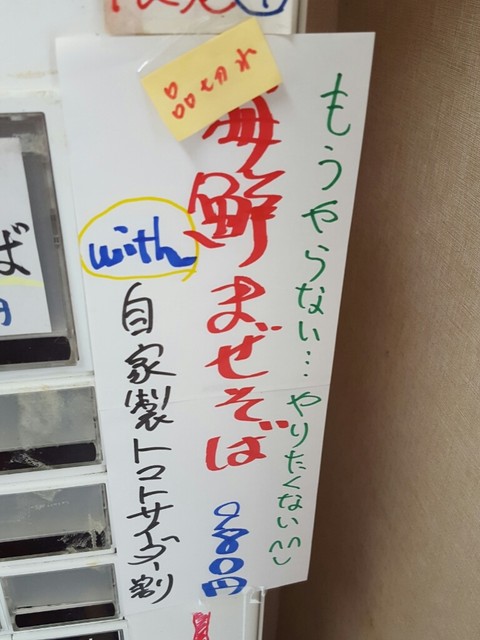 売切れ
もうやらない…やりたくない^^
海鮮まぜそば
980円
with
自家製トマトサイダー割
ば
円